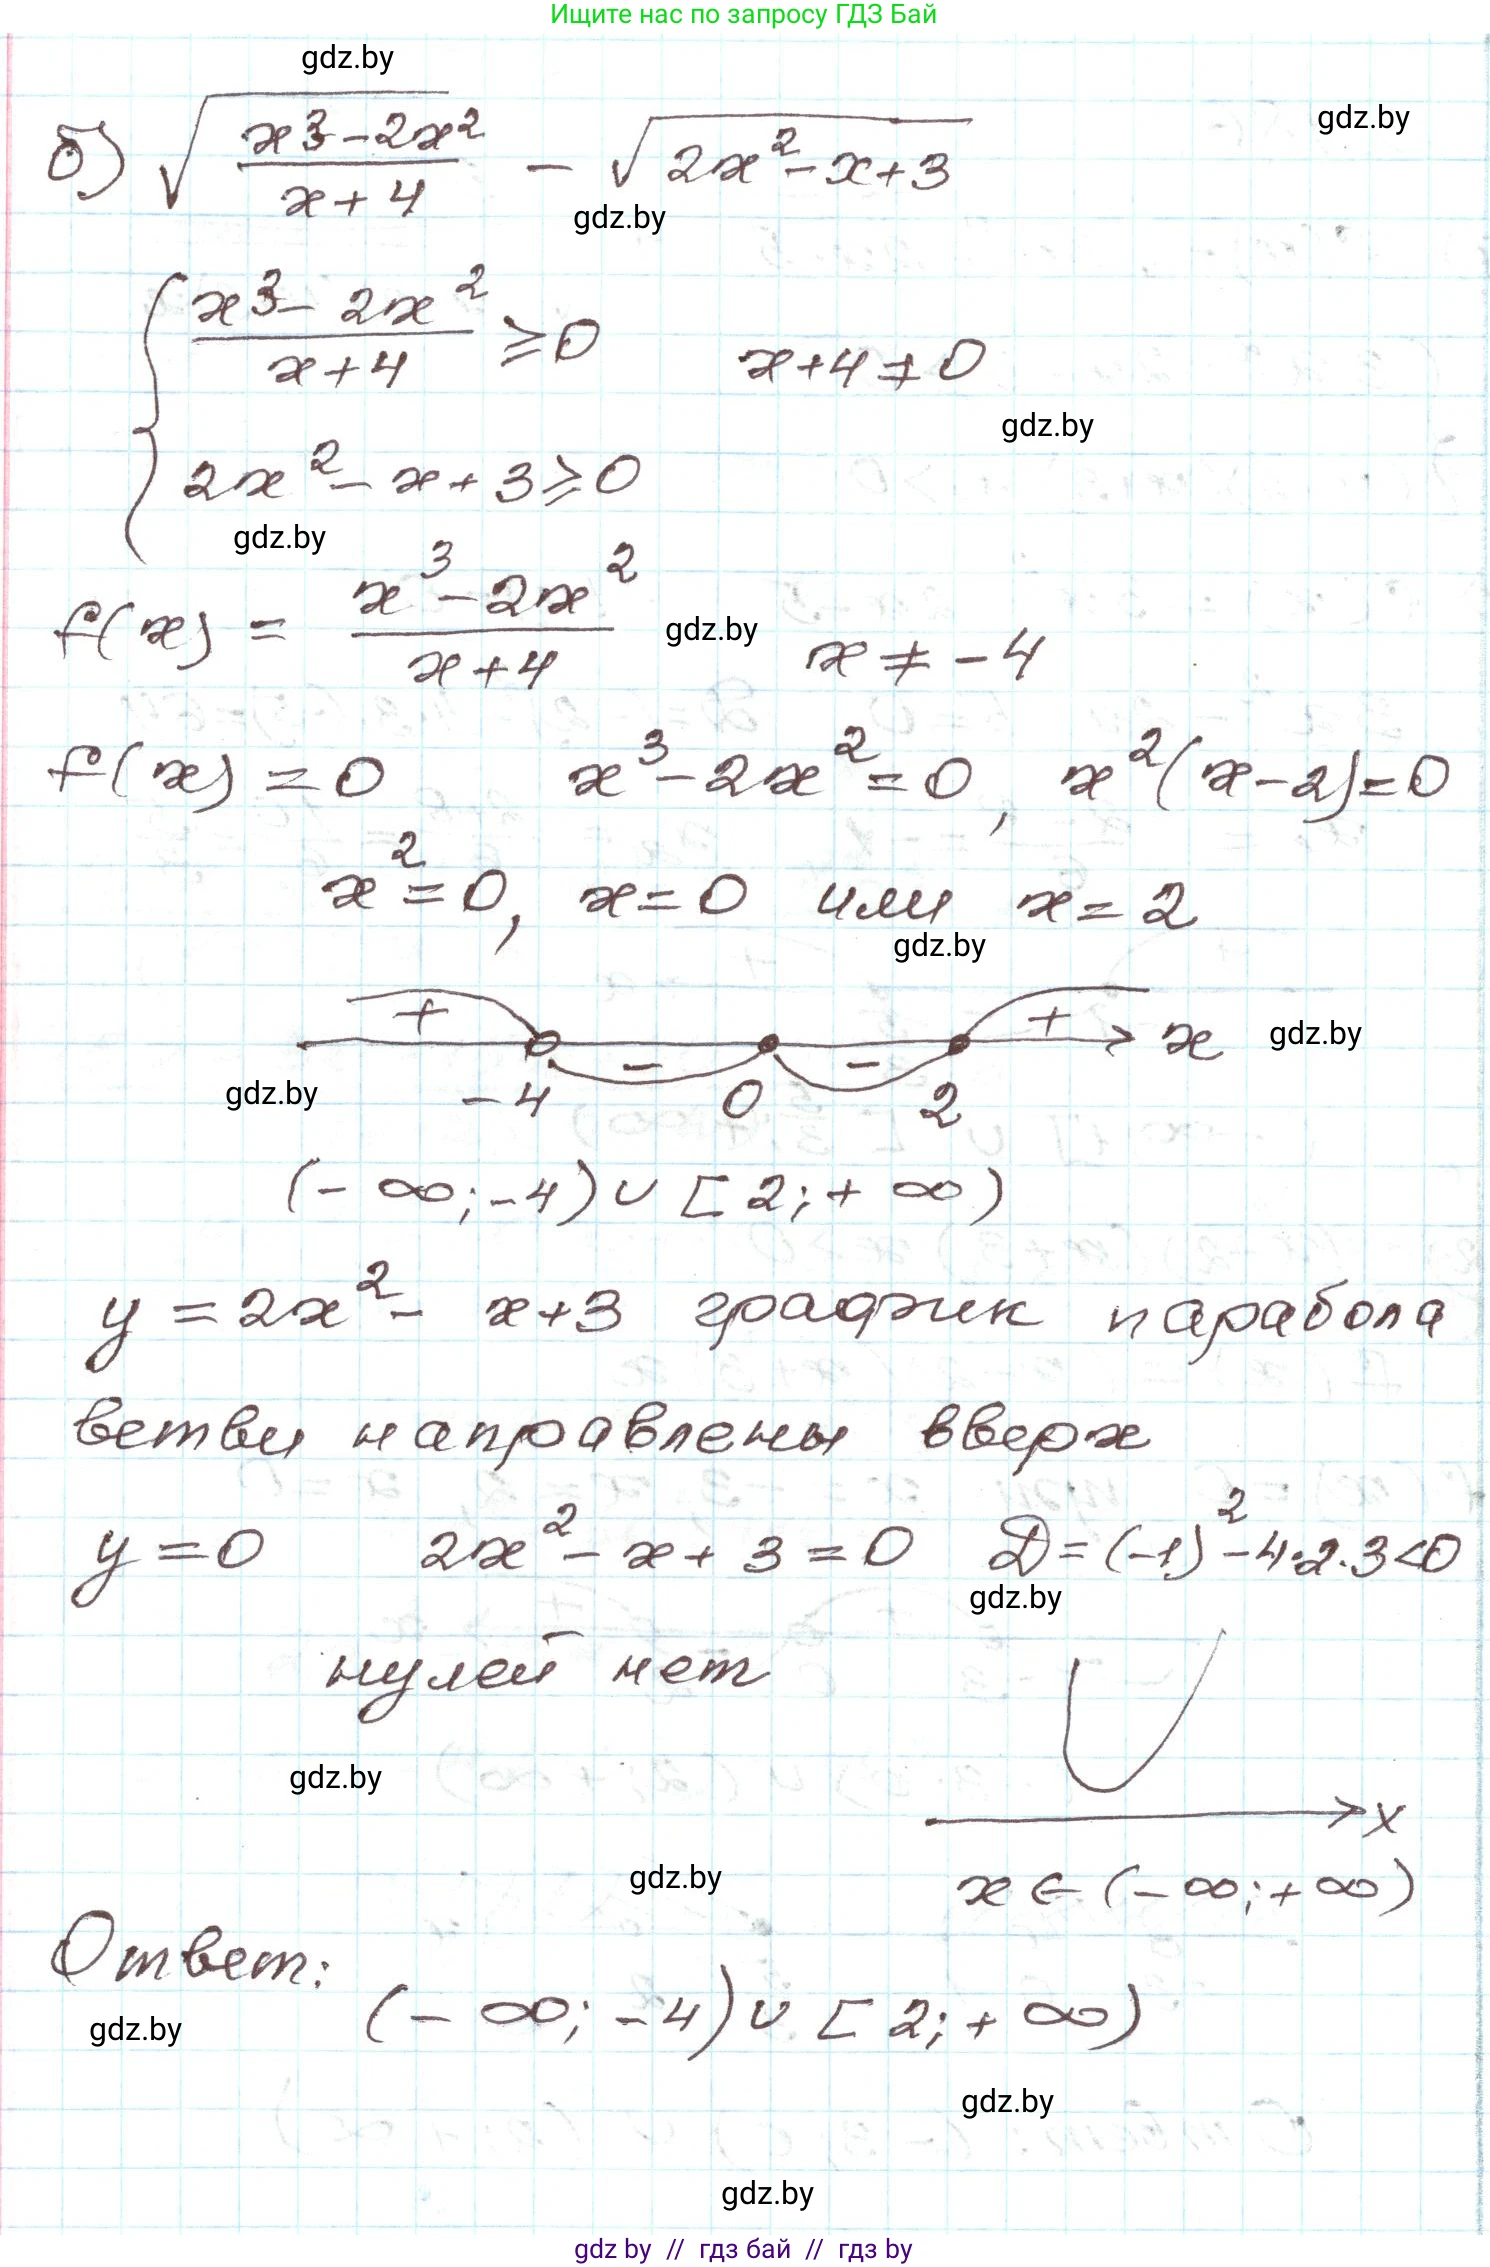 Ищите нас по запросу ГДЗ Бай
gdz.by
gdz.by
б) √((x³-2x²)/(x+4)) - √(2x²-x+3)
gdz.by
{ (x³-2x²)/(x+4) ≥ 0    x+4≠0
gdz.by
2x²-x+3≥0
gdz.by
f(x) = (x³-2x²)/(x+4)    x ≠ -4
gdz.by
f(x) = 0    x³-2x²=0, x²(x-2)=0
x²=0, x=0 или x=2
gdz.by
+ - - + x
gdz.by
gdz.by
-4 0 2
(-∞;-4)∪[2;+∞)
y=2x²-x+3 график парабола
ветви направлены вверх
y=0    2x²-x+3=0    D=(-1)²-4·2·3<0
gdz.by
нулей нет
gdz.by
x
gdz.by
x∈(-∞;+∞)
Ответ:
(-∞;-4)∪[2;+∞)
gdz.by
gdz.by
gdz.by
gdz.by // гдз бай // гдз by